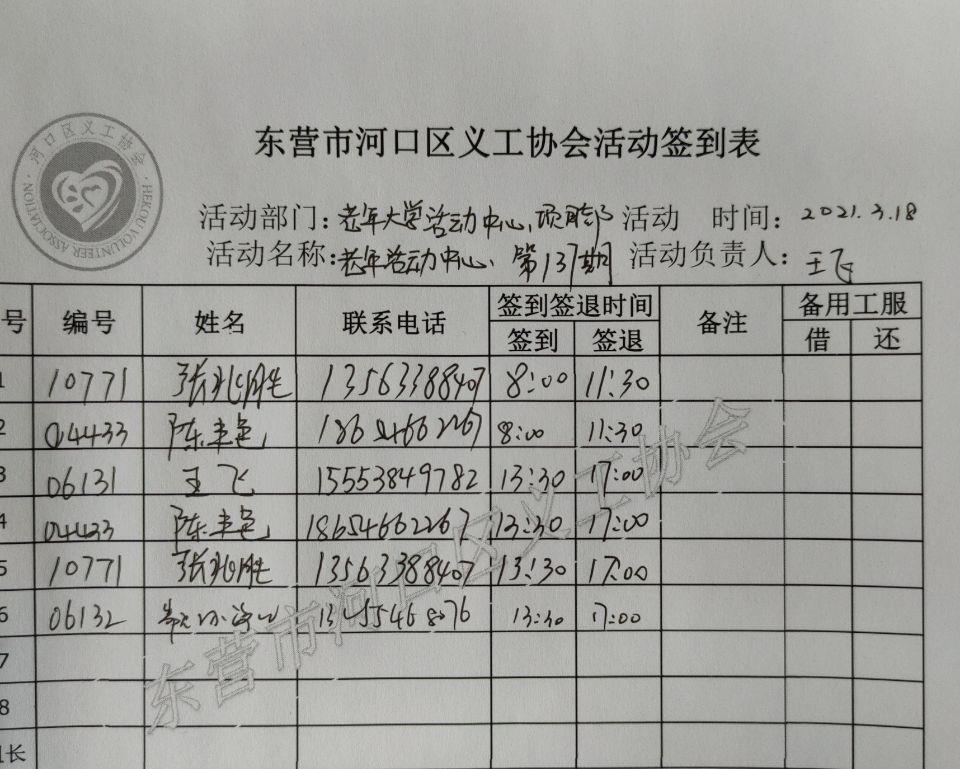 东营市河口区义工协会活动签到表
河口区义工协会
HEKOU VOLUNTEER ASSOCIATION
活动部门：老年大学活动中心，项目部 活动 时间：2021.3.18
活动名称：老年活动中心、第137期 活动负责人：王飞
号 编号 姓名 联系电话 签到签退时间 备注 备用工服
签到 签退 借 还
1 10771 张兆胜 13563388407 8:00 11:30
2 04433 陈丰色 18654662267 8:00 11:30
3 06131 王飞 15553849782 13:30 17:00
4 04433 陈丰色 18654662267 13:30 17:00
5 10771 张兆胜 13563388407 13:30 17:00
6 06132 13:30 17:00
7
8
长
东营市河口区义工协会